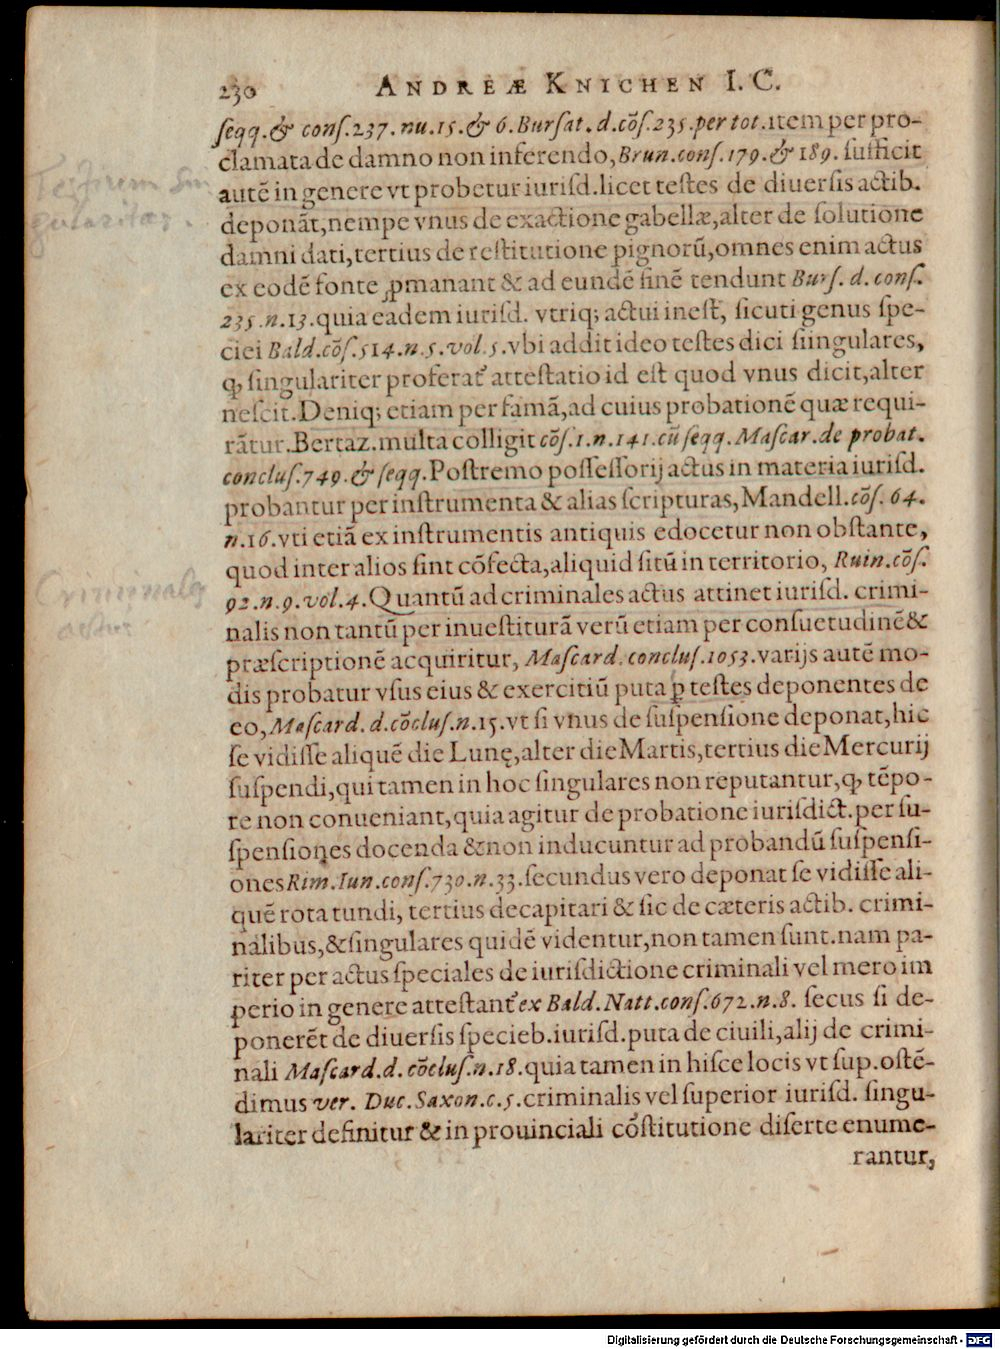 230 ANDREÆ KNICHEN I. C.
ſeqq. & conſ. 237. nu. 15. & 6. Burſat. d. cõſ. 235. per tot. item per pro-
clamata de damno non inferendo, Brun. conſ. 179. & 189. ſufficit
autẽ in genere vt probetur iuriſd. licet teſtes de diuerſis actib.
deponãt, nempe vnus de exactione gabellæ, alter de ſolutione
damni dati, tertius de reſtitutione pignorũ, omnes enim actus
ex eodẽ fonte ꝓmanant & ad eundẽ finẽ tendunt Burſ. d. conſ.
235. n. 13. quia eadem iuriſd. vtriq; actui ineſt, ſicuti genus ſpe-
ciei Bald. cõſ. 514. n. 5. vol. 5. vbi addit ideo teſtes dici ſiingulares,
ꝙ ſingulariter proferat᷑ atteſtatio id eſt quod vnus dicit, alter
neſcit. Deniq; etiam per famã, ad cuius probationẽ quæ requi-
rãtur. Bertaz. multa colligit cõſ. 1. n. 141. cũ ſeqq. Maſcar. de probat.
concluſ. 749. & ſeqq. Poſtremo poſſeſſorij actus in materia iuriſd.
probantur per inſtrumenta & alias ſcripturas, Mandell. cõſ. 64.
n. 16. vti etiã ex inſtrumentis antiquis edocetur non obſtante,
quod inter alios ſint cõfecta, aliquid ſitũ in territorio, Ruin. cõſ.
92. n. 9. vol. 4. Quantũ ad criminales actus attinet iuriſd. crimi-
nalis non tantũ per inueſtiturã verũ etiam per conſuetudinẽ &
præſcriptionẽ acquiritur, Maſcard. concluſ. 1053. varijs autẽ mo-
dis probatur vſus eius & exercitiũ puta ꝑ teſtes deponentes de
eo, Maſcard. d. cõcluſ. n. 15. vt ſi vnus de ſuſpenſione deponat, hic
ſe vidiſſe aliquẽ die Lunę, alter die Martis, tertius die Mercurij
ſuſpendi, qui tamen in hoc ſingulares non reputantur, ꝙ tẽpo-
re non conueniant, quia agitur de probatione iuriſdict. per ſu-
ſpenſiones docenda & non inducuntur ad probandũ ſuſpenſi-
ones Rim. Iun. conſ. 730. n. 33. ſecundus vero deponat ſe vidiſſe ali-
quẽ rota tundi, tertius decapitari & ſic de cæteris actib. crimi-
nalibus, & ſingulares quidẽ videntur, non tamen ſunt. nam pa-
riter per actus ſpeciales de iuriſdictione criminali vel mero im
perio in genere atteſtant᷑ ex Bald. Natt. conſ. 672. n. 8. ſecus ſi de-
ponerẽt de diuerſis ſpecieb. iuriſd. puta de ciuili, alij de crimi-
nali Maſcard. d. cõcluſ. n. 18. quia tamen in hiſce locis vt ſup. oſtẽ-
dimus ver. Duc. Saxon. c. 5. criminalis vel ſuperior iuriſd. ſingu-
lariter definitur & in prouinciali cõſtitutione diſerte enume-
rantur,
Criminales
actus
Digitalisierung gefördert durch die Deutsche Forschungsgemeinschaft - DFG